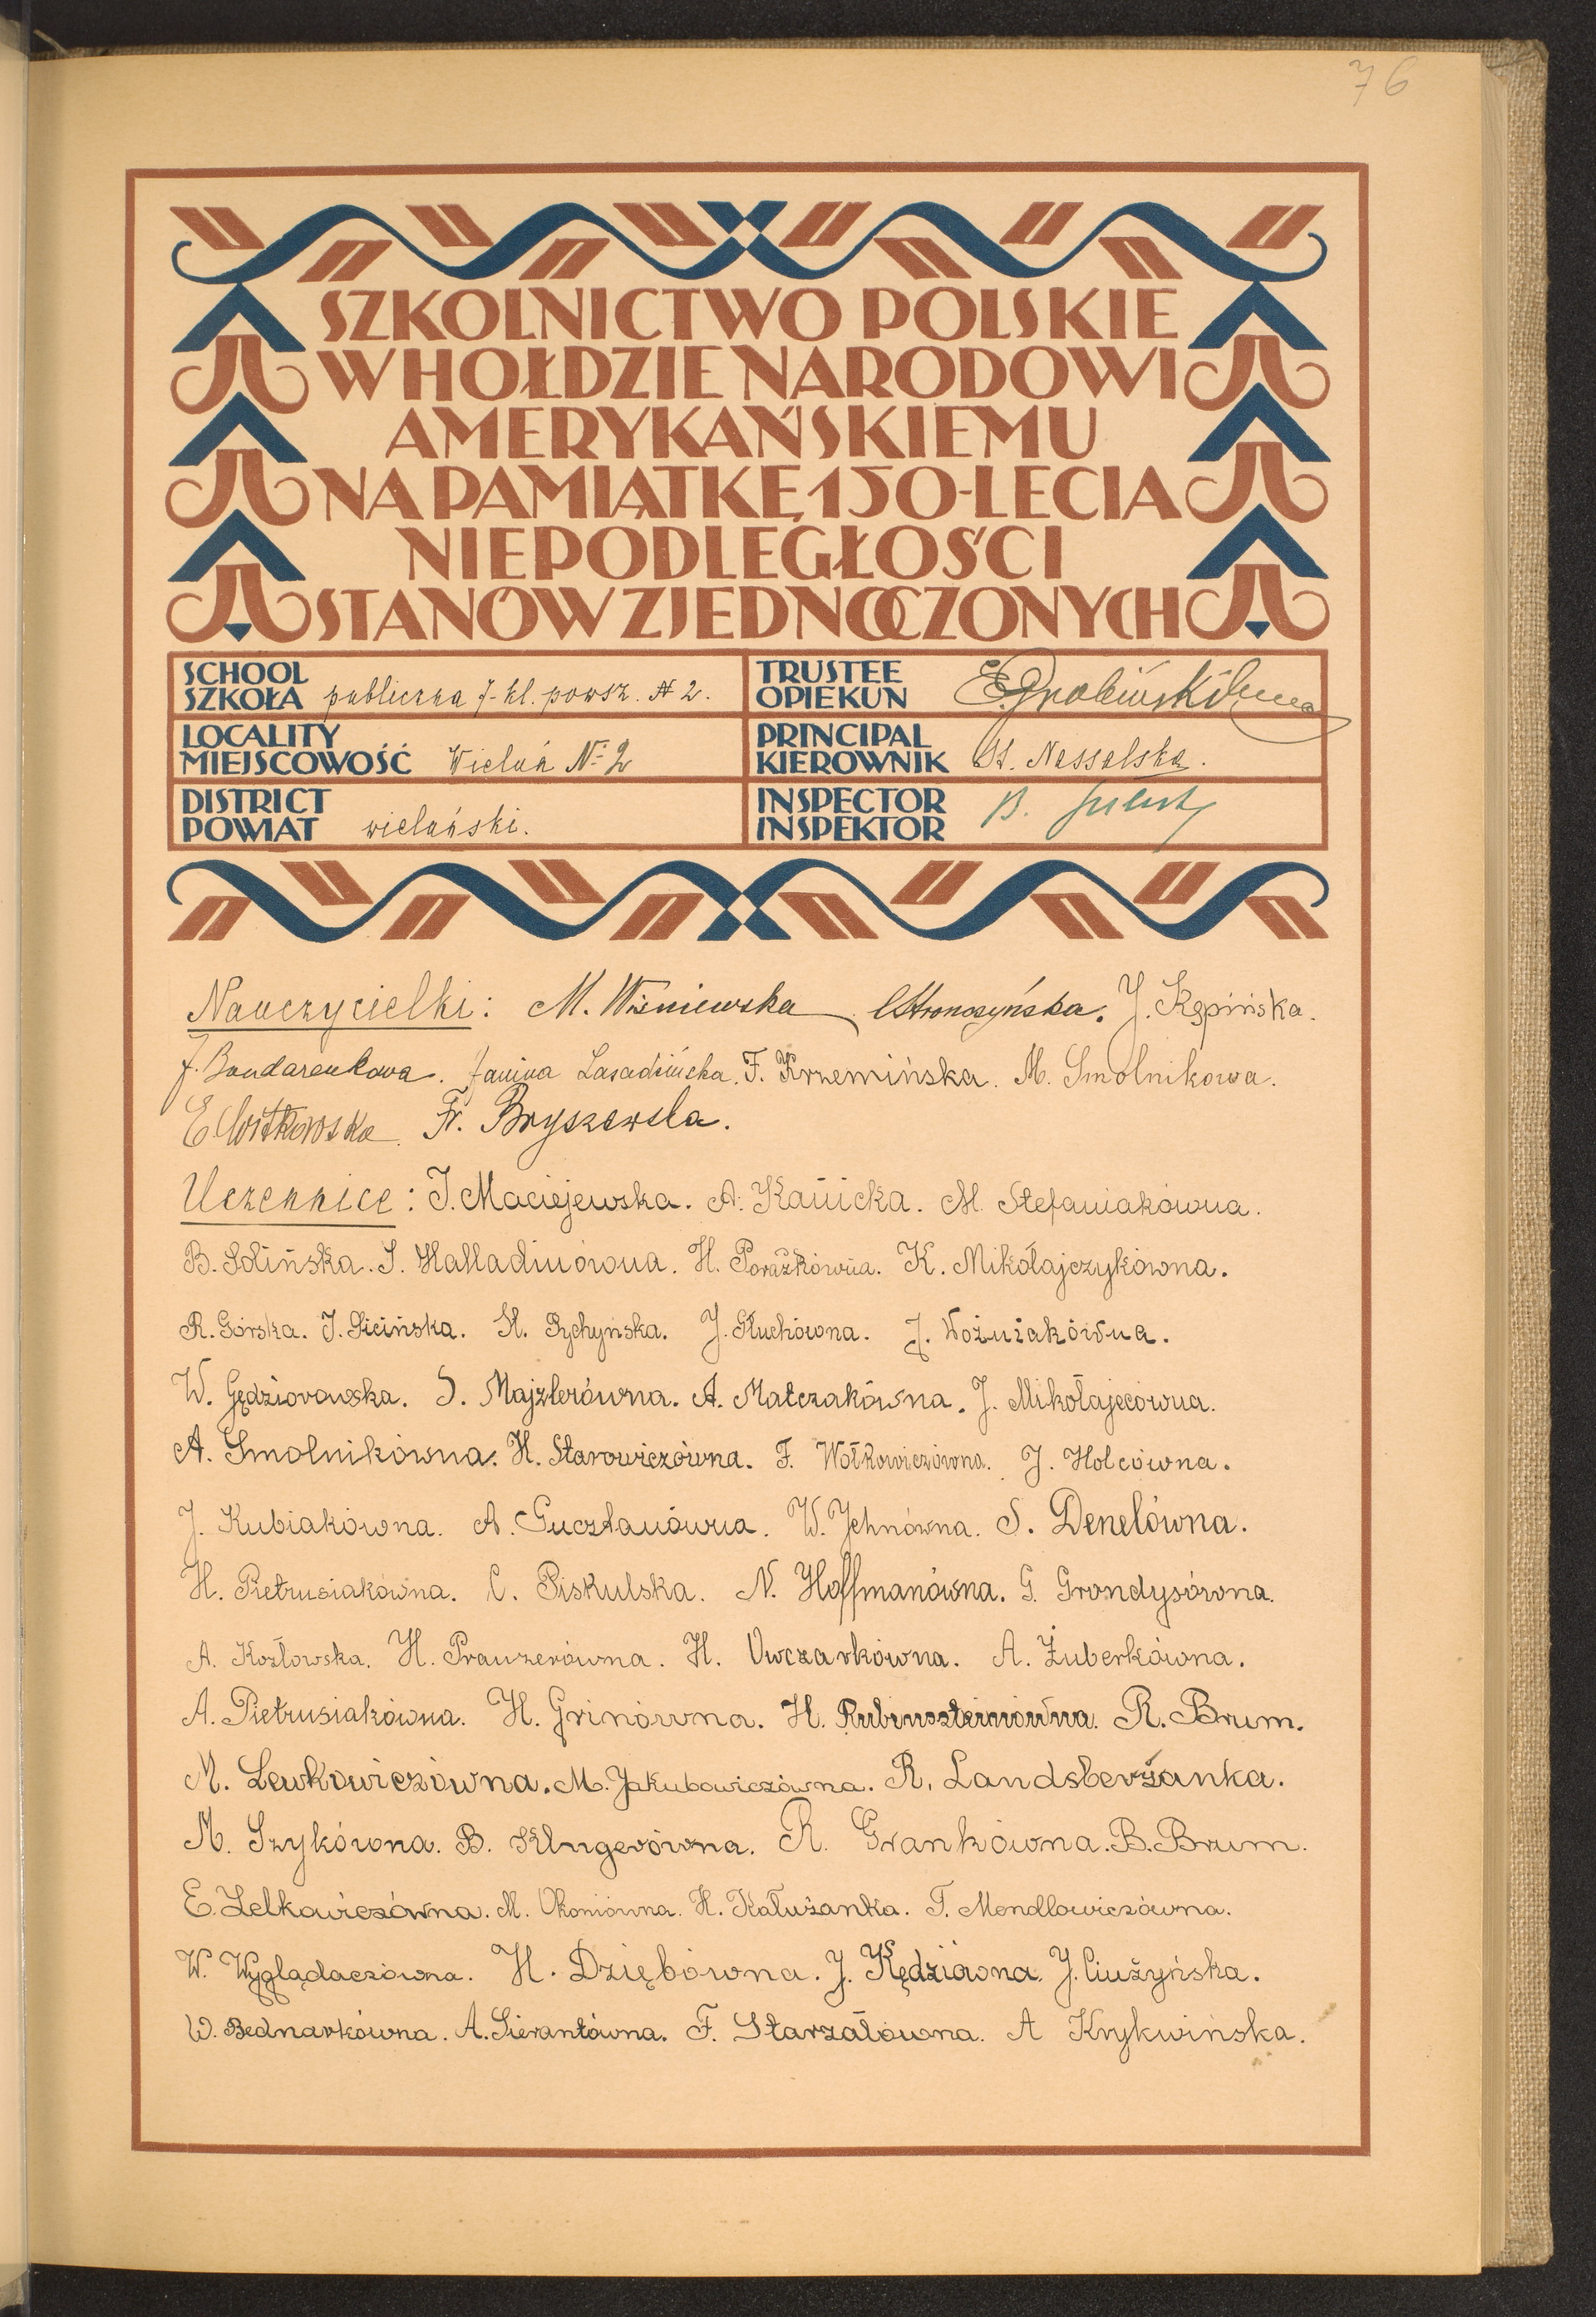 76
SZKOLNICTWO POLSKIE
W HOŁDZIE NARODOWI
AMERYKAŃSKIEMU
NA PAMIĄTKĘ 150-LECIA
NIEPODLEGŁOŚCI
STANÓW ZJEDNOCZONYCH
SCHOOL
SZKOŁA publiczna 7-kl. powsz. № 2.
TRUSTEE
OPIEKUN
LOCALITY
MIEJSCOWOŚĆ Wieluń № 2
PRINCIPAL
KIEROWNIK St. Nesselska.
DISTRICT
POWIAT wieluński.
INSPECTOR
INSPEKTOR B.
Nauczycielki: M. Wiśniewska Stronczyńska. J. Kępińska.
J. Bondarenkowa. Janina F. Krzemińska. M. Smolnikowa.
E Witkowska. Fr. Bryszewska.
Uczennice: J. Maciejewska. A. Kanicka. M. Stefaniakówna.
B. Solińska. S. Halladinówna. H. Porażkówna. K. Mikołajczykówna.
R. Górska. J. Sicińska. H. Rychyńska. J. Głuchówna. J. Woźniakówna.
W. Gędziorowska. S. Majzlerówna. A. Matczakówna. J. Mikołajecówna.
A. Smolnikówna. H. Starowiczówna. F. Wołkowiczówna. J. Holcówna.
J. Kubiakówna. A. Guczłanówna. W. Jehnówna. S. Denelówna.
H. Pietrusiakówna. C. Piskulska. N. Hoffmanówna. G. Grondysówna.
A. Kozłowska. H. Prauzerówna. H. Owczarkówna. A. Żuberkówna.
A. Pietrusiakówna. H. Grinówna. H. Rubinszteinówna. R. Brum.
M. Lewkowiczówna. M. Jakubowiczówna. R. Landsberżanka.
M. Szykówna. B. Klugerówna. R. Grankówna. B. Brum.
E. Zelkowiczówna. M. Okoniówna. H. Kałużanka. T. Mendlowiczówna.
W. Wyglądaczówna. H. Dziębówna. J. Kędziówna. J. Ciużyńska.
W. Bednarkówna. A. Sierantówna. F. Starzałówna. A Krykwińska.